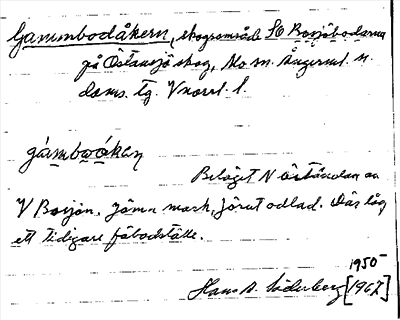 Gammbodåkern, skogsområde SO Borsjöbodarna
på Östansjö skog, Mo sn. Ångerml. n.
doms. tg. Vnorrl. l.
gámbωòken
Beläget N
V Borsjön, Jämn mark, förut odlad. Där låg
ett tidigare fäbodställe.
1950
Hans A. Söderberg [1967]